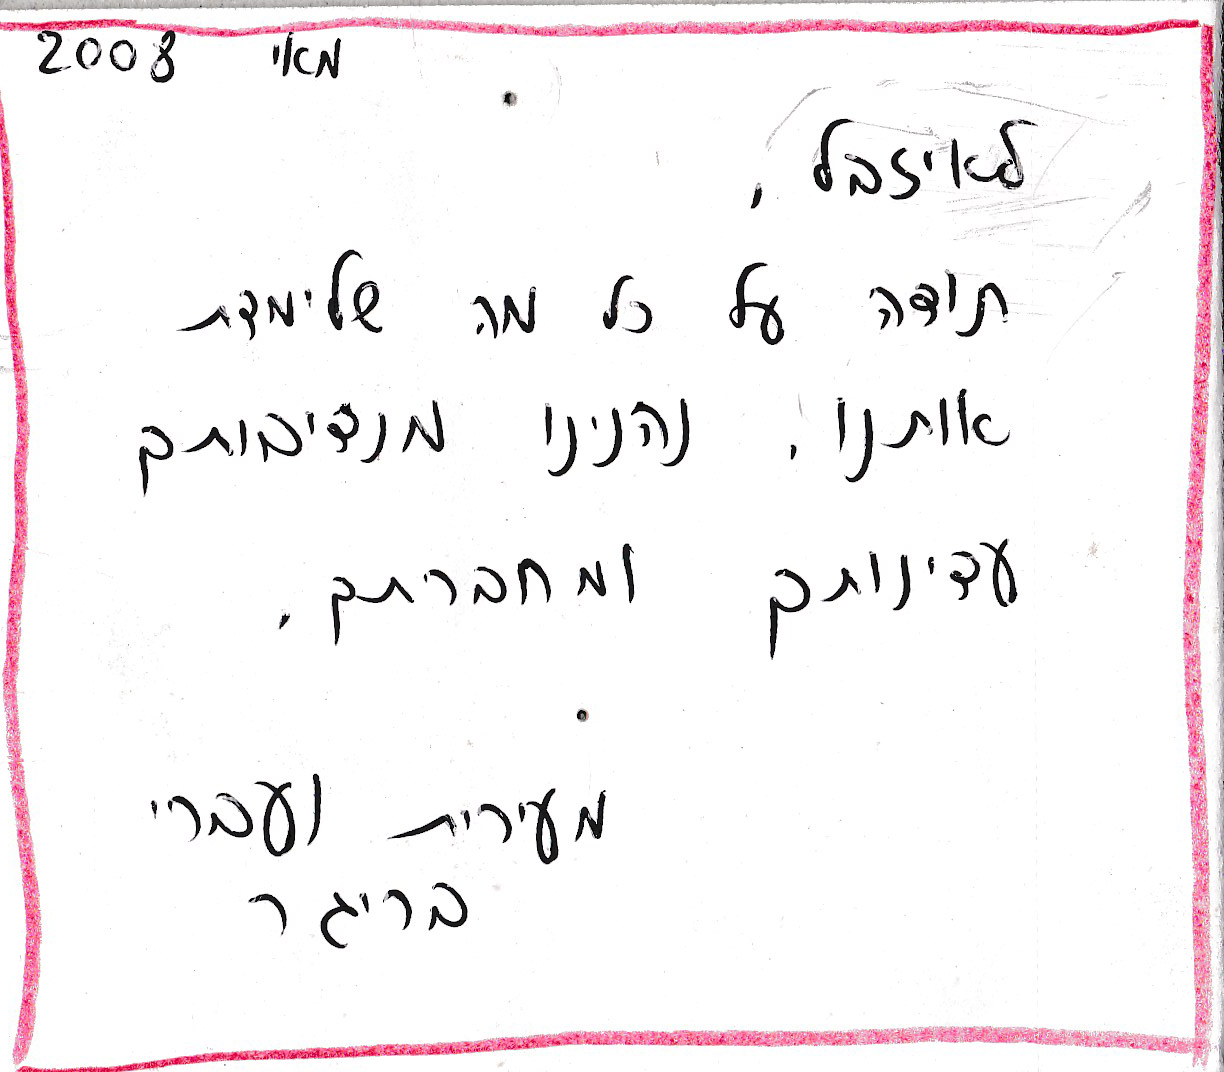 מאי 2008
לאיזבל,
תודה על כל מה שלימדת
אותנו, נהנינו מנדיבותך
עדינותך ומחברתך.
מעירית ועברי
בריגר